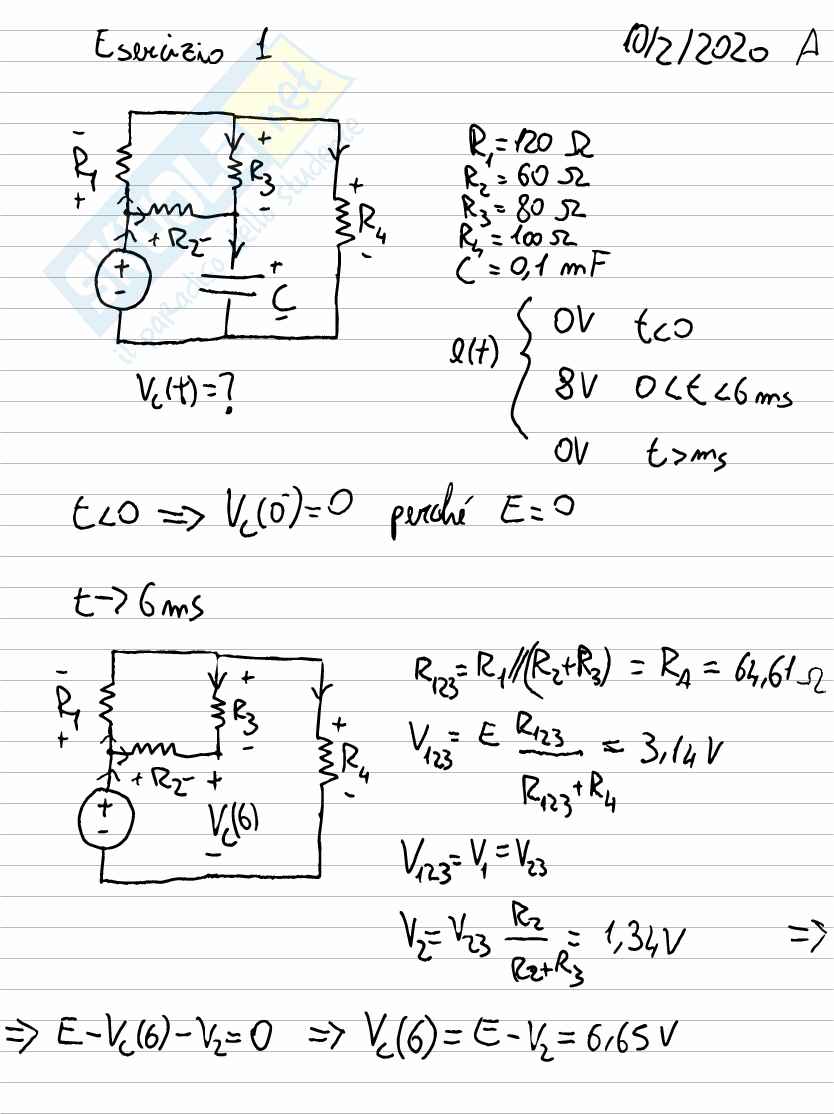 Esercizio 1 10/2/2020 A
- R1 +
+ R3 -
+ R4 -
+ R2 -
+ -
+ C -
Vc(t)=?
R1=120 Ω
R2=60 Ω
R3=80 Ω
R4=100 Ω
C=0,1 mF
e(t) { 0V t<0
8V 0<t<6 ms
0V t>ms
t<0 => Vc(0⁻)=0 perché E=0
t->6 ms
- R1 +
+ R3 -
+ R4 -
+ R2 -
+ -
+ Vc(6) -
R123=R1//(R2+R3) = RA = 64,61 Ω
V123= E R123/(R123+R4) = 3,14 V
V123=V1=V23
V2=V23 R2/(R2+R3) = 1,34V =>
=> E-Vc(6)-V2=0 => Vc(6)=E-V2=6,65 V
SKUOLA.net
il paradiso dello studente